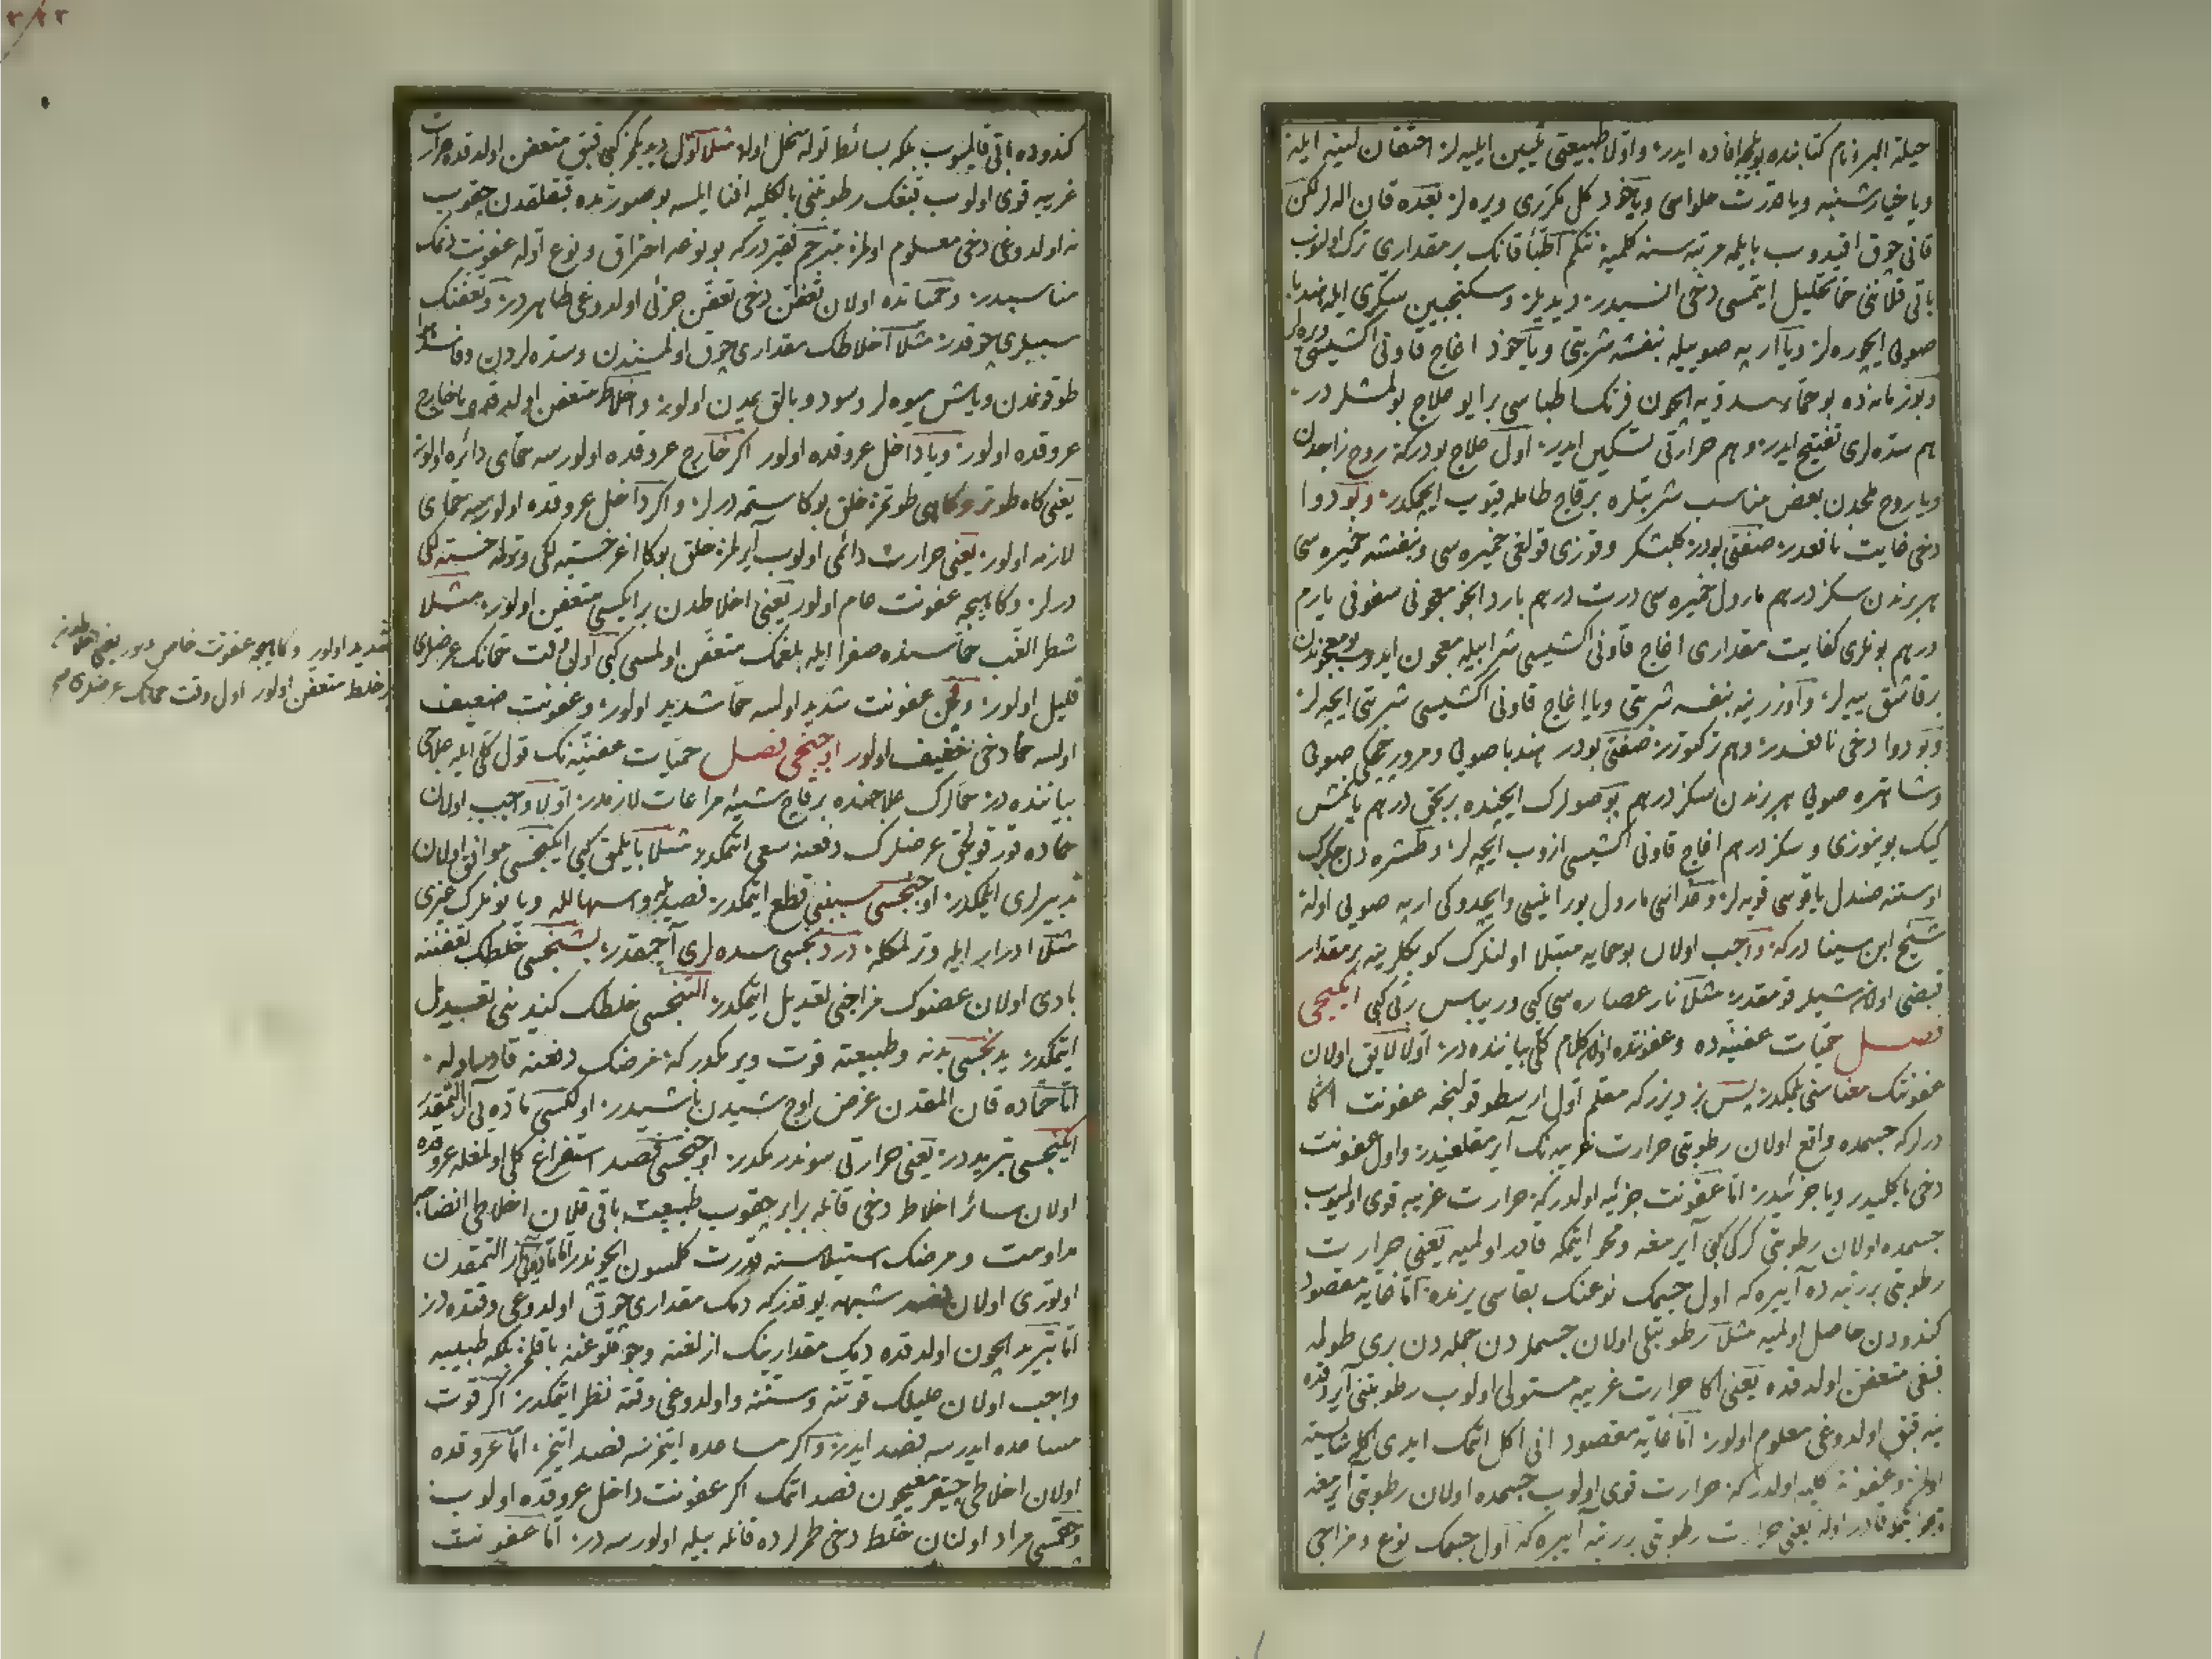 حيلة البرؤ نام كتابنده بويله افاده ايدر واولا طبيعتى تليين ايليه لر احتقان لينه ايله
ويا خيار شنبه ويا قدرت حلواسى وياخود كل مكررى ويره لر بعده قان اله لر لكن
قانى چوق اقيدوب بايلمه مرتبه سنه كلميه نتكم اطبا قانك بر مقدارى ترك اولنوب
باقى قلاننى حما تحليل ايتمسى دخى انسبدر ديديلر وسكنجبين سكرى ايله هندبا
صويى ايچوره لر ويا ارپه صوييله بنفشه شربتى وياخود اغاج قاونى اكشيسى ويره لر
وبو زمانده بو حماء سدديه ايچون فرنك اطباسى بر ايو علاج بولمشلردر
هم سده لرى تفتيح ايدر وهم حرارتى تسكين ايدر اول علاج بودركه روح زاجدن
ويا روح ملحدن بعض مناسب شربتلره بر قاچ طامله قيوب ايچمكدر وبو دوا
دخى غايت نافعدر صنعتى بودر كلبشكر وقوزى قولغى خميره سى وبنفشه خميره سى
هر برندن سكز درهم مارول خميره سى درت درهم بارد ابخر معجونى سفوفى يارم
درهم بونلرى كفايت مقدارى اغاج قاونى اكشيسى شرابيله معجون ايدوب بو معجوندن
بر قاشق ييه لر و اوزرينه بنفشه شربتى ويا اغاج قاونى اكشيسى شربتى ايچه لر
وبو دوا دخى نافعدر وهم زكوزر صفتى بودر هندبا صويى ومرور چچكى صويى
وشاهتره صويى هر برندن سكز درهم بو صولرك ايچنده بر بچق درهم يانمش
كيك بوينوزى وسكز درهم اغاج قاونى اكشيسى ازوب ايچه لر وطشره دن جكرك
اوستنه صندل ياقوسى قويه لر وغداسى مارول بورانيسى وايچدوكى ارپه صويى اوله
شيخ ابن سينا دركه واجب اولان بو حمايه مبتلا اولنلرك كوبكلرينه بر مقدار
قبضى اولان شيلر قومقدر مثلا نار عصاره سى كبى وريباس ربى كبى ايكنجى
فصل حميات عفنيه ده وعفونتده اولان كلام كلى بياننده در اولا لايق اولان
عفونتك معناسنى بلمكدر پس بز ديرز كه معلم اول ارسطو قولنجه عفونت اكا
درلركه جسمده واقع اولان رطوبتى حرارت غريبه نك آيرمقلغيدر واول عفونت
دخى يا كليدر ويا جزئيدر اما عفونت جزئيه اولدركه حرارت غريبه قوى اولميوب
جسمده اولان رطوبتى كركى كبى آيرمغه ومحو ايتمكه قادر اولميه يعنى حرارت
رطوبتى بر رتبه ده آييره كه اول جسمك نوعنك بقاسى يرنده اما غايه مقصود
كندودن حاصل اولميه مثلا رطوبتلى اولان جسملردن جمله دن برى طوله
قبغى متعفن اولدقده يعنى اكا حرارت غريبه مستولى اولوب رطوبتنى آيردقده
ينه قبق اولدوغى معلوم اولور اما غايه مقصود انى اكل اتمك ايدى اكله شايسته
اولمز وعفونة كليه اولدركه حرارت قوى اولوب جسمده اولان رطوبتى آيرمغه
ومحو ايتمكه قادر اوله يعنى حرارت رطوبتى بر رتبه آييره كه اول جسمك نوع ومزاجى
كندوده باقى قالميوب بلكه بسائطا توله منحل اوله مثلا اول ديديكمز كبى قبق متعفن اولدقده حرارت
غريبه قوى اولوب قبغك رطوبتنى بالكليه افنا ايلسه بو صورتده قبقلقدن چقوب
نه اولدوغى دخى معلوم اولمز مترجم فقير دركه بو نوعه احتراق ونوع اوله عفونت دنمك
مناسبدر وحمياتده اولان تعفن دخى تعفن جزئى اولدوغى ظاهردر وتعفنك
سببلرى چوقدر مثلا اخلاطك مقدارى چوق اولمسندن وسده لردن وفاسد هوا
طوقونمدن وياش ميوه لر وسود وبالق يمدن اولور واخلاط متعفن اولسه قدرى يا خارج
عروقده اولور ويا داخل عروقده اولور اكر خارج عروقده اولورسه حماى دائره اولور
يعنى كاه طوتر وكاهى طوتمز خلق بوكا ستمه درلر واكر داخل عروقده اولورسه حماى
لازمه اولور يعنى حرارت دائمى اولوب آيرلمز خلق بوكا اغر خسته لكى وتوله خسته لكى
درلر وكاهيجه عفونت عام اولور يعنى اخلاطدن بر ايكسى متعفن اولور مثلا
شطر الغب حماسنده صفرا ايله بلغمك متعفن اولمسى كبى اول وقت حمانك عرضلرى
قليل اولور وچن عفونت شديد اولسه حما شديد اولور وعفونت ضعيف
اولسه حما دخى خفيف اولور اوچنجى فصل حميات عفنيه نك قول كلى ايله علاجى
بياننده در حمالرك علاجنده بر قاچ شيئه مراعات لازمدر اولا واجب اولان
حماده قورقولجق عرضلرك دفعنه سعى اتمكدر مثلا بايلمق كبى ايكنجسى موافق اولان
تدبيرلرى ايتمكدر اوچنجسى سببنى قطع ايتمكدر فصد ايله واسهالله ويا بونلرك غيرى
مثلا ادرار ايله وترلمكله دردنجسى سده لرى آچمقدر بشنجسى خلطك تعفننه
بادى اولان عضوك مزاجنى تعديل ايتمكدر التنجسى خلطك كندينى تعديل
ايتمكدر يدنجسى بدنه وطبيعته قوت ويرمكدر كه مرضك دفعنه قادر اوله
اما حماده قان المقدن غرض اوچ شيدن ناشيدر اولكسى ماده يى آزالتمقدر
ايكنجسى تبريددر يعنى حرارتى سوندرمكدر اوچنجسى فصد استفراغ كلى اولمغله عروقده
اولان سائر اخلاط دخى قانله برابر چقوب طبيعت باقى قلان اخلاطى انضاجه
مداومت ومرضك استيلاسنه قدرت كلسون ايچوندر اما ماده يى آزالتمقدن
اوتورى اولان فصد شبهه يوقدركه دمك مقدارى چوق اولدوغى وقتده در
اما تبريد ايچون اولدقده دمك مقدارينك ازلغنه وچوقلوغنه باقلمز بلكه طبيبه
واجب اولان عليلك قوتنه وسننه واولدوغى وقته نظر ايتمكدر اكر قوت
مساعده ايدرسه فصد ايدر واكر مساعده ايتمزسه فصد ايتمز اما عروقده
اولان اخلاطى چيقرمغيچون فصد اتمك اكر عفونت داخل عروقده اولوب
چقمسى مراد اولنان خلط دخى طمرلرده قانله بيله اولورسه در اما عفونت
شديد اولور وكاهيجه عفونت خاص اولور يعنى اخلاطدن
بر خلط متعفن اولور اول وقت حمانك عرضلرى صح